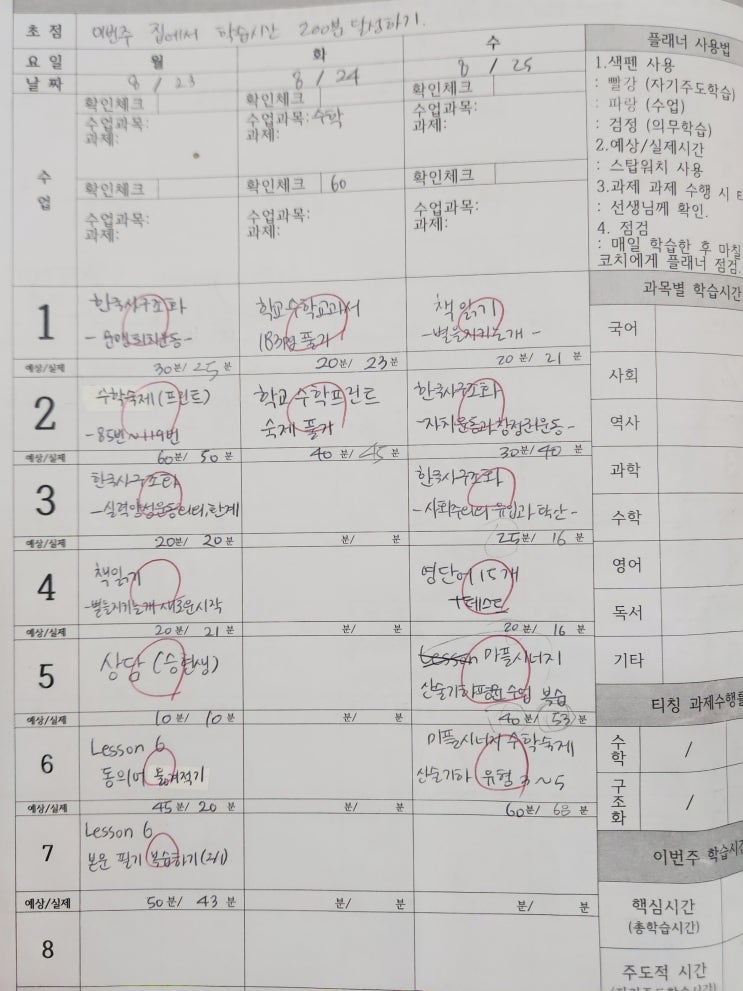 초점 이번주 집에서 학습시간 200분 달성하기.
요일 월 화 수
날짜 8 / 23 8 / 24 8 / 25
수업
확인체크
수업과목:
과제:
확인체크
수업과목:
과제:
확인체크
수업과목: 수학
과제:
확인체크 60
수업과목:
과제:
확인체크
수업과목:
과제:
확인체크
수업과목:
과제:
1
한국사구조화
학교 수학교과서
183쪽 풀기
책 읽기
-별을지키는개-
예상/실제 30분/ 25분 20분/ 23분 20분/ 21분
2
수학숙제(프린트)
-85번~119번
학교 수학프린트
숙제 풀기
한국사구조화
예상/실제 60분/ 50분 40분/ 45분 30분/ 40분
3
한국사구조화
한국사구조화
-사회주의의 유입과 확산-
예상/실제 20분/ 20분 분/ 분 25분/ 16분
4
책읽기
-별을지키는개 새로운시작
영단어 15개
+테스트
예상/실제 20분/ 21분 분/ 분 20분/ 16분
5
상담 (승현쌤)
Lesson 마플시너지
산술기하평균 수업 복습
예상/실제 10분/ 10분 분/ 분 40분/ 53분
6
Lesson 6
동의어 옮겨적기
마플시너지 수학숙제
산술기하 유형 3~5
예상/실제 45분/ 20분 분/ 분 60분/ 68분
7
Lesson 6
본문 필기 복습하기(2/1)
예상/실제 50분/ 43분 분/ 분 분/ 분
8
플래너 사용법
1.색펜 사용
: 빨강 (자기주도학습)
: 파랑 (수업)
: 검정 (의무학습)
2.예상/실제시간
: 스탑워치 사용
3.과제 과제 수행 시
: 선생님께 확인.
4. 점검
: 매일 학습한 후 마칠
코치에게 플래너 점검.
과목별 학습시간
국어
사회
역사
과학
수학
영어
독서
기타
티칭 과제수행률
수학 /
구조화 /
이번주 학습시간
핵심시간
(총학습시간)
주도적 시간